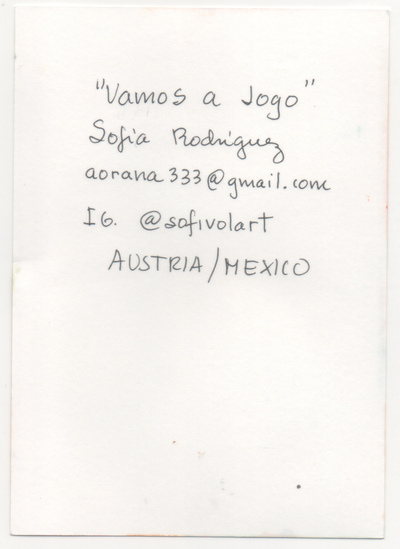 "Vamos a Jogo"
Sofia Rodríguez
aorana333@gmail.com
IG. @sofivolart
AUSTRIA/MEXICO